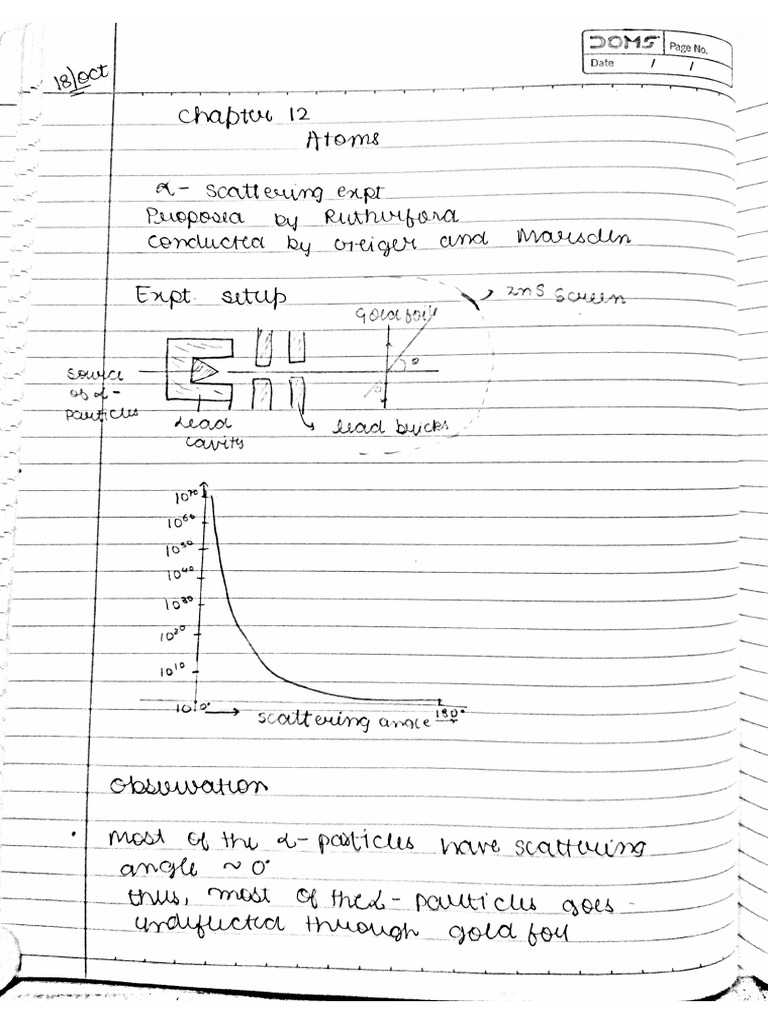 DOMS Page No.
Date / /
18/Oct
Chapter 12
Atoms
α- scattering expt
Proposed by Rutherford
Conducted by Geiger and Marsden
Expt. setup
ZnS screen
Gold foil
θ
source
of α-
particles
Lead
cavity
lead bricks
10⁷⁰
10⁶⁰
10⁵⁰
10⁴⁰
10³⁰
10²⁰
10¹⁰
10 0°
→ scattering angle 180°
Observation
• Most of the α-particles have scattering
angle ~ 0°
thus, most of the α- particles goes
undeflected through gold foil